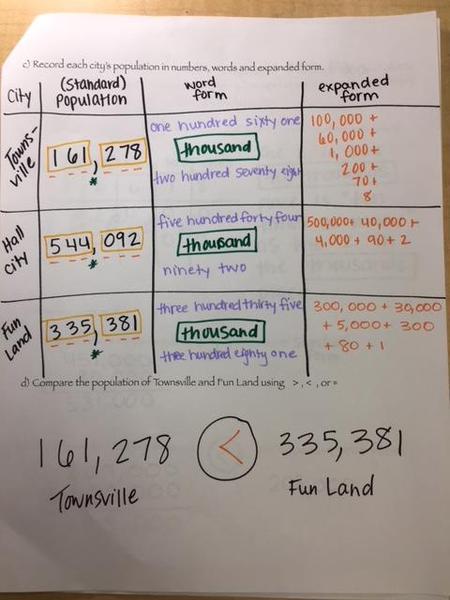 c) Record each city's population in numbers, words and expanded form.
City
(Standard)
Population
word
form
expanded
form
Towns-
ville
161,278
one hundred sixty one
thousand
two hundred seventy eight
100,000 +
60,000 +
1,000 +
200 +
70 +
8
Hall
City
544,092
five hundred forty four
thousand
ninety two
500,000 + 40,000 +
4,000 + 90 + 2
Fun
Land
335,381
three hundred thirty five
thousand
three hundred eighty one
300,000 + 30,000
+ 5,000 + 300
+ 80 + 1
d) Compare the population of Townsville and Fun Land using >, <, or =
161,278 < 335,381
Townsville Fun Land